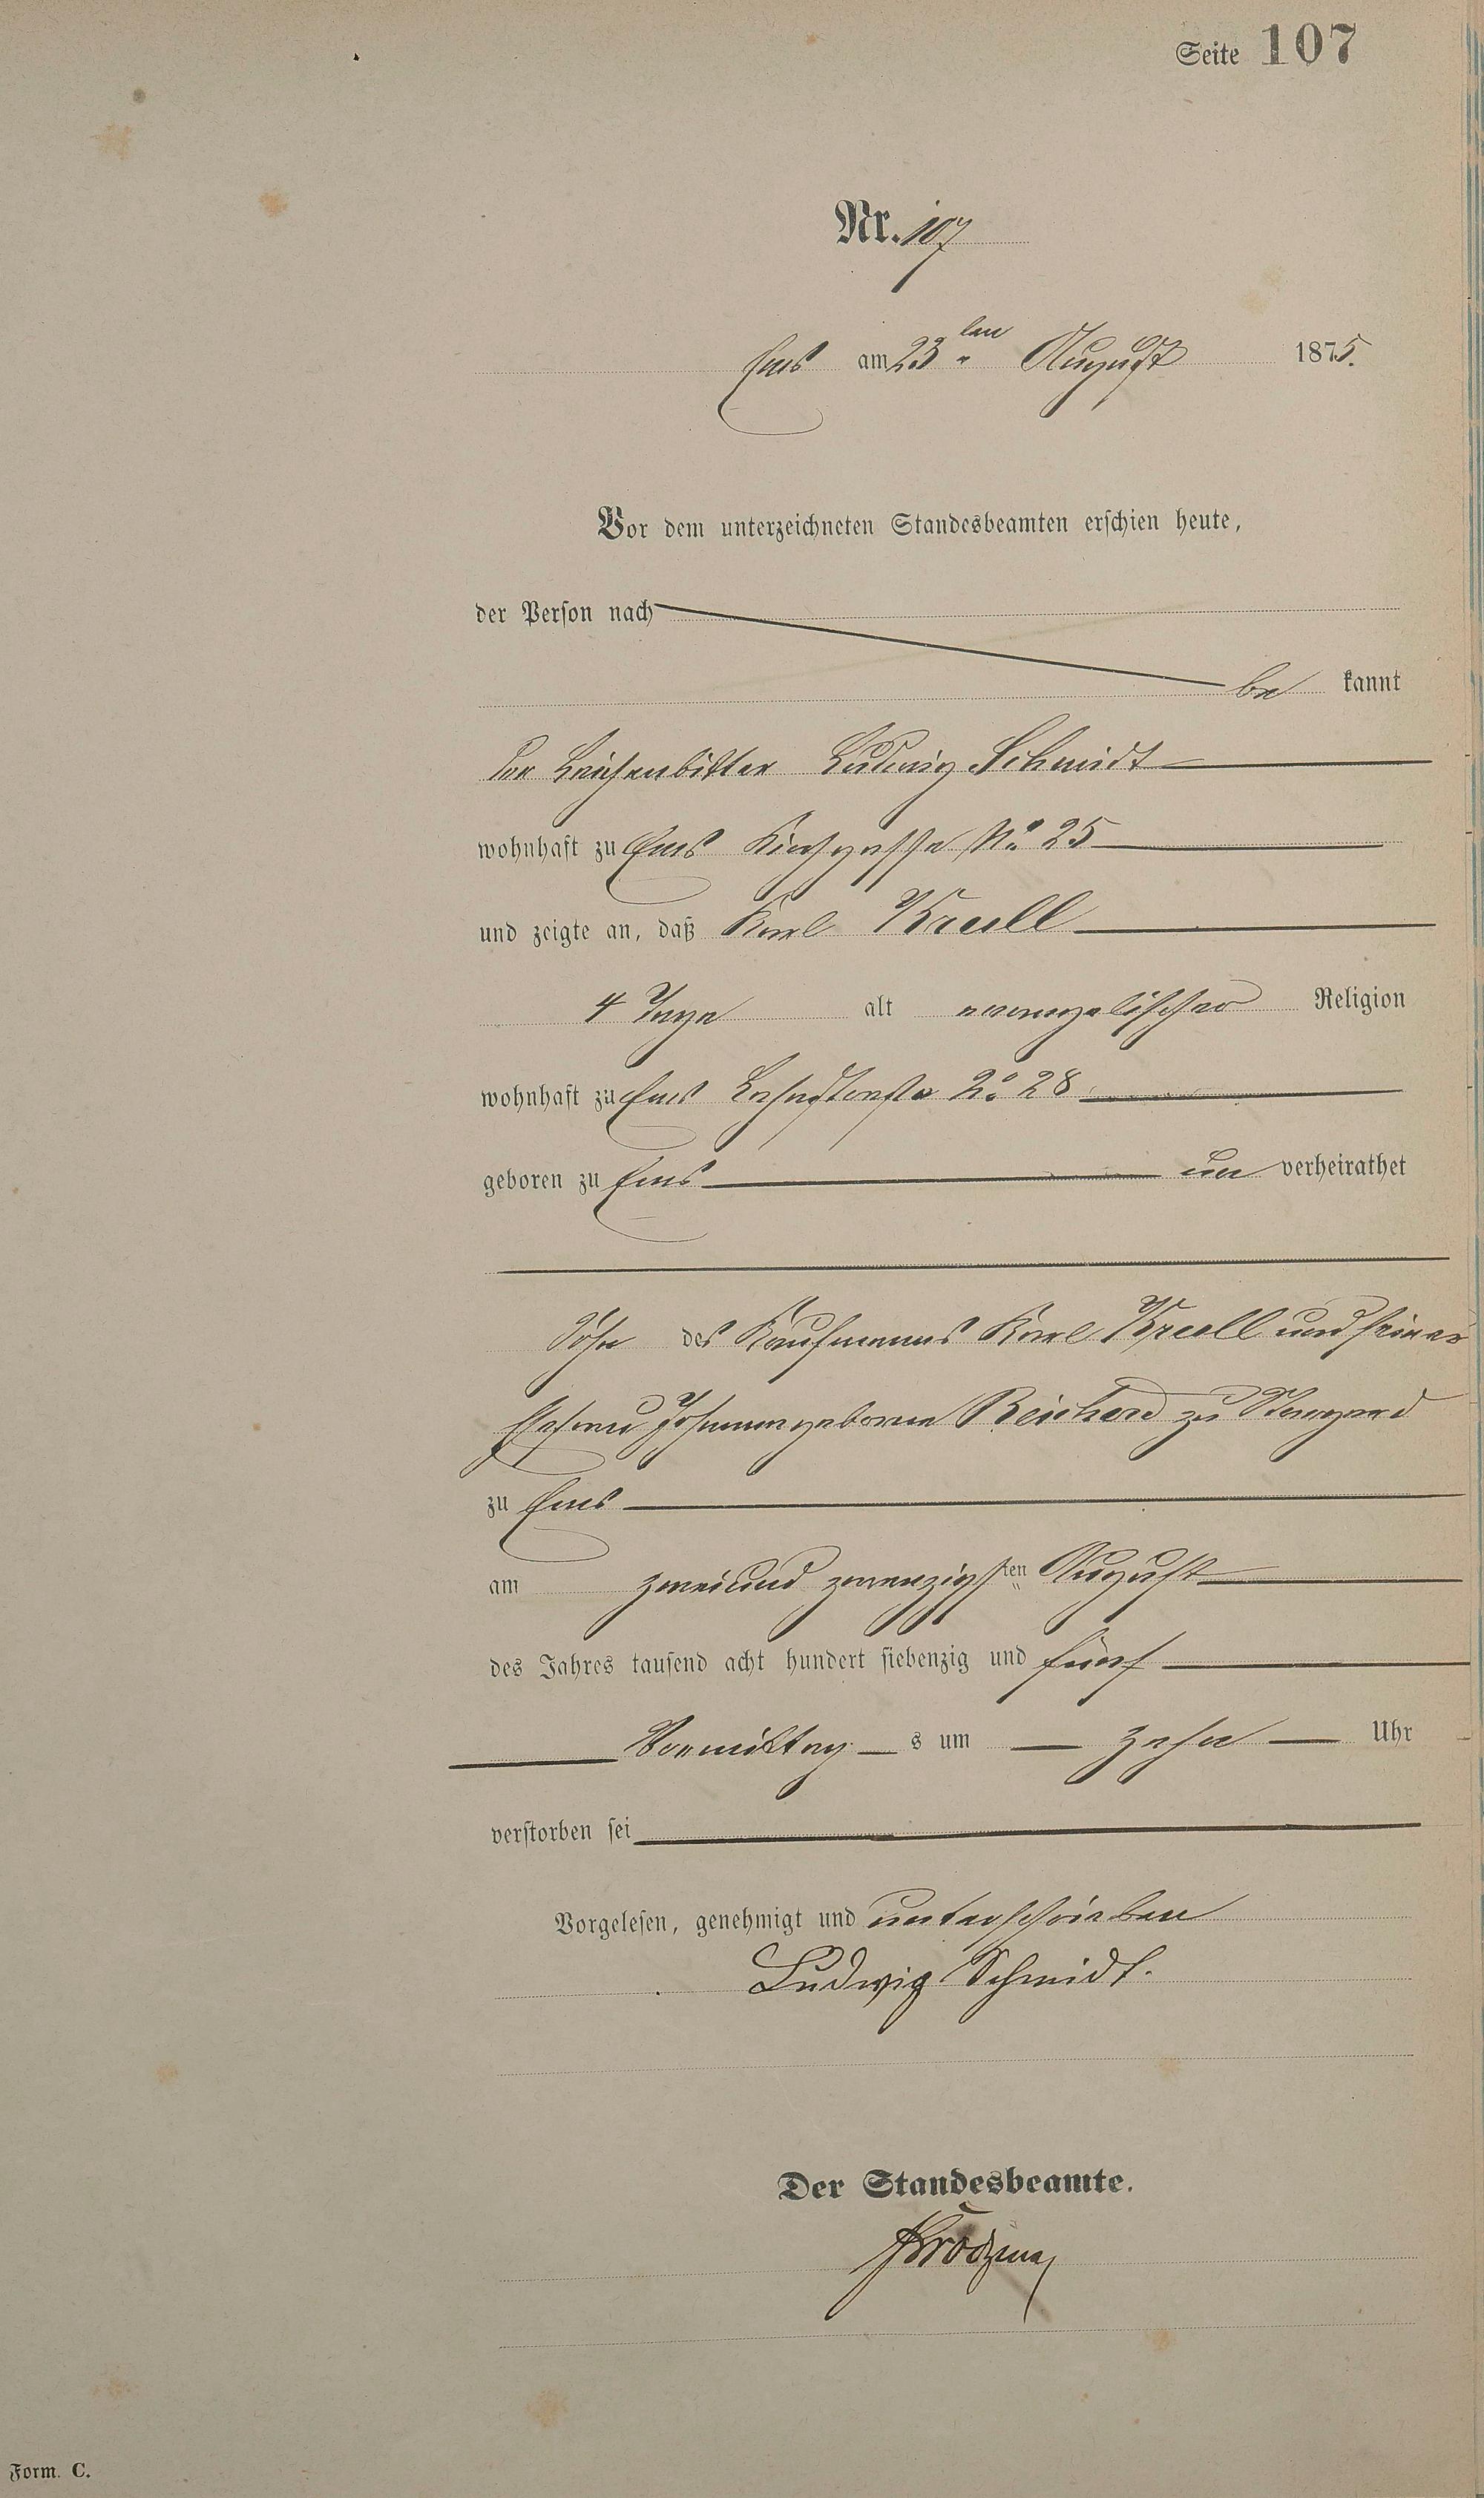 Seite 107
Nr. 107
Ems am 23ten August 1875.
Vor dem unterzeichneten Standesbeamten erschien heute,
der Person nach
be kannt
der Leichenbitter Ludwig Schmidt
wohnhaft zu Ems Kirchgasse No. 25
und zeigte an, daß Karl Krull
4 Tage alt evangelischer Religion
wohnhaft zu Ems No. 28
geboren zu Ems un verheirathet
Sohn des Kaufmanns Karl Krell und seiner
Ehefrau Johanna geborne Reichard zu
zu Ems
am zweiund zwanzigsten August
des Jahres tausend acht hundert siebenzig und fünf
Vormittag s um zehn Uhr
verstorben sei
Vorgelesen, genehmigt und unterschrieben
Ludwig Schmidt.
Der Standesbeamte.
Form. C.